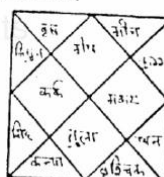 वृष
मीन
मिथुन
मेष
कुंभ
कर्क
मकर
सिंह
तुला
धन
कन्या
वृश्चिक